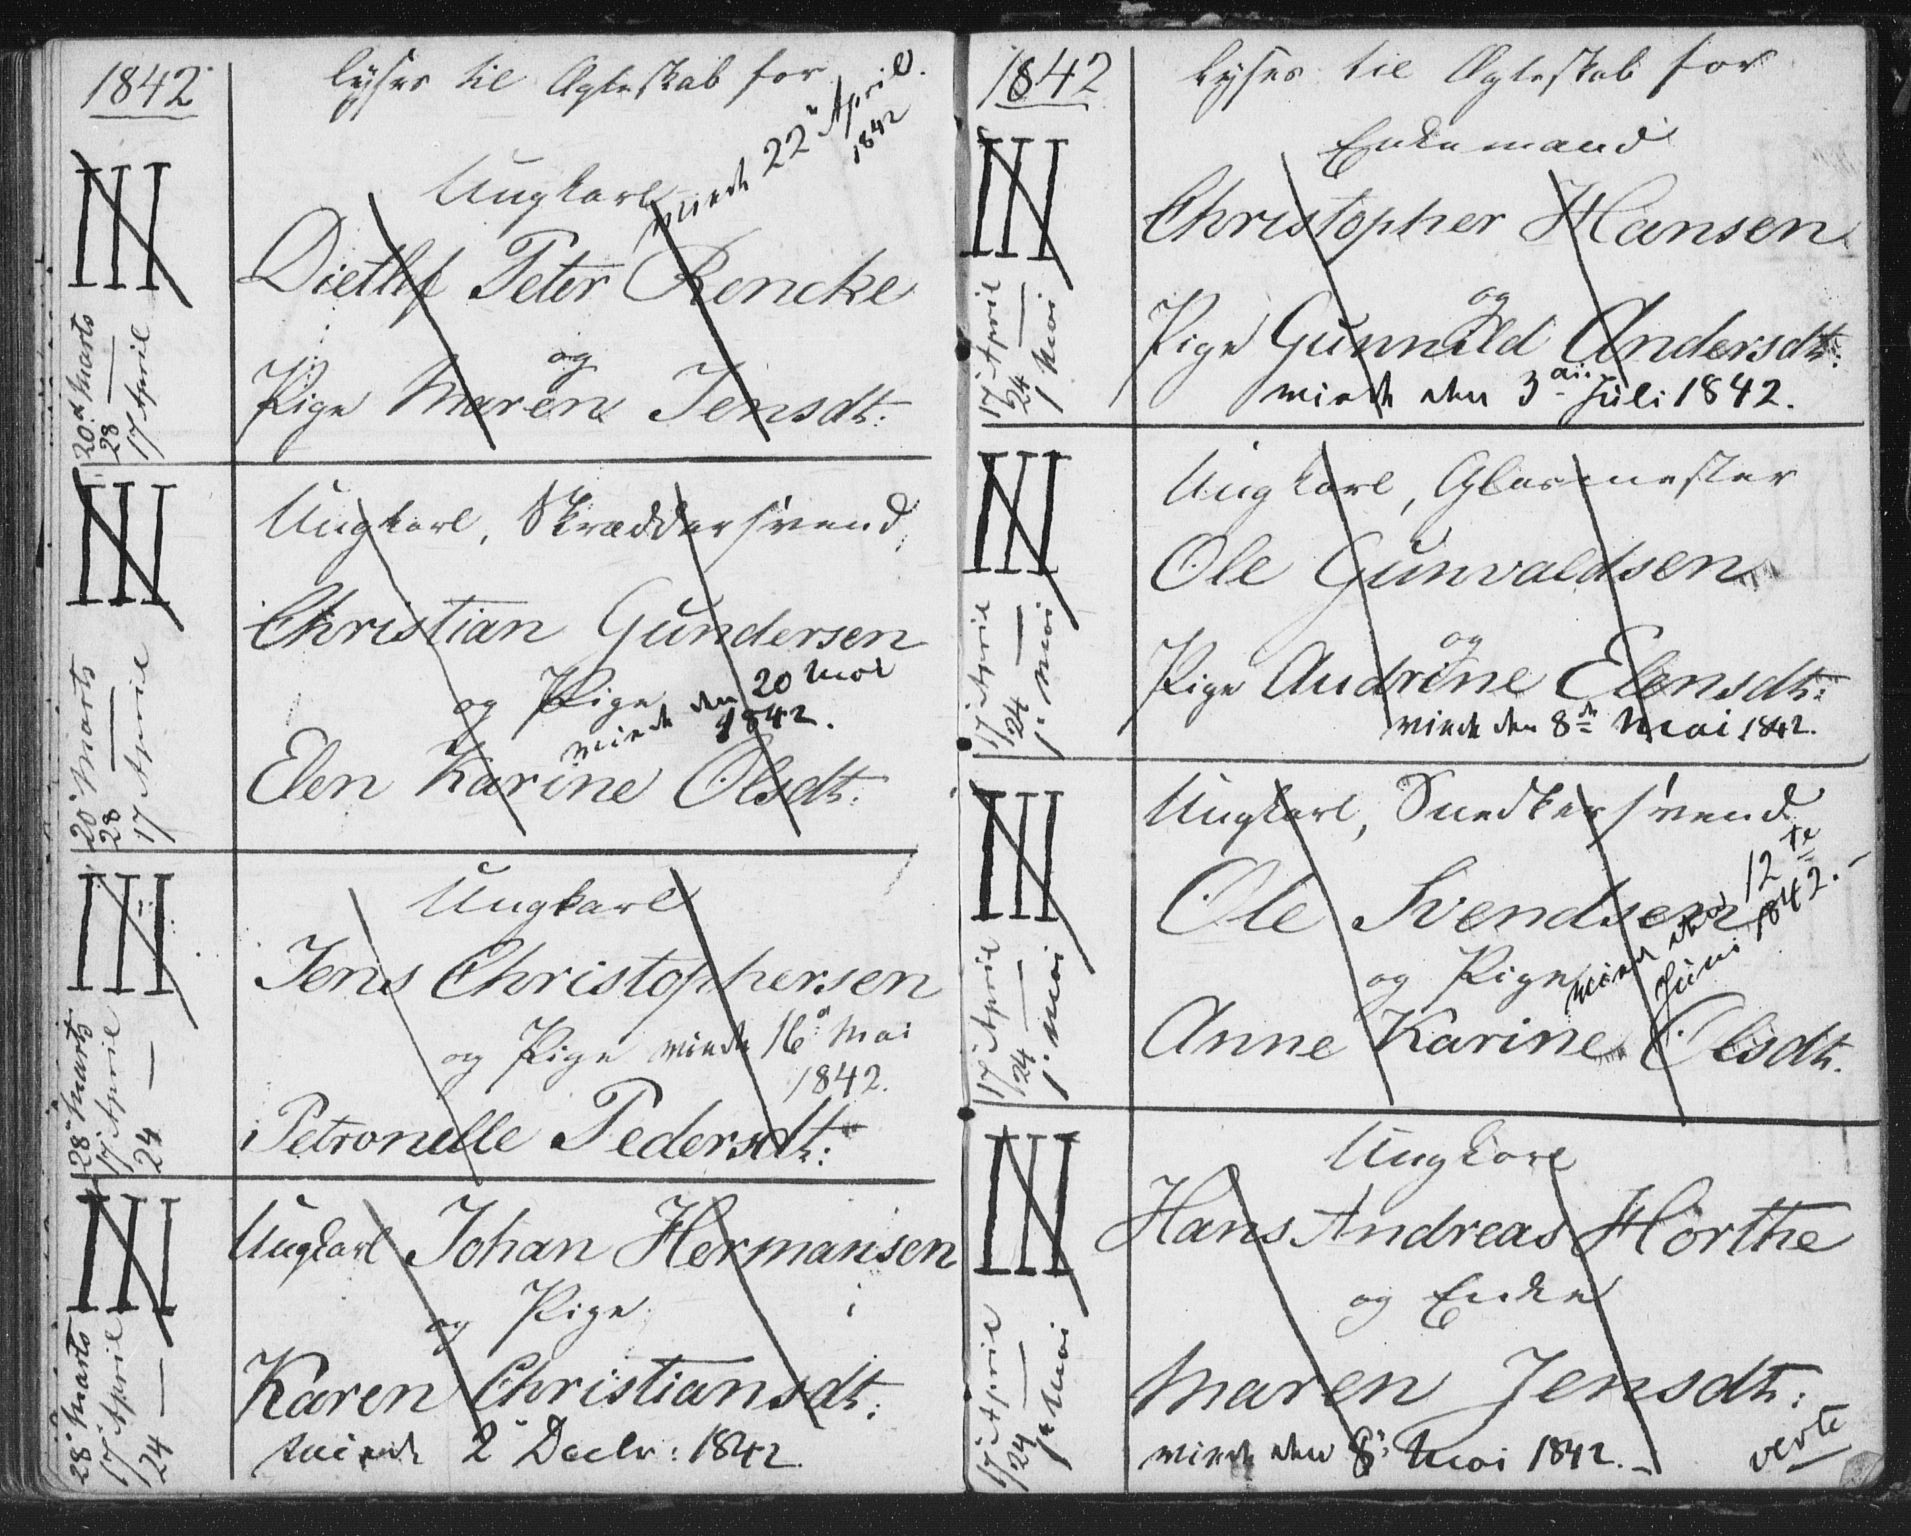 1842
lyses til Ægteskab for
Ungkarl
viede 22 April
1842
III
Dietlef Peter Rencke
og
Pige Maren Jensdt:
20de Marts
28 —
17 April
III
Ungkarl, Skræddersvend
Christian Gundersen
og Pige
viede den 20 Mai
1842.
Elen Karine Olsdt:
20 Marts
28 —
17 April
III
Ungkarl
Jens Christophersen
og Pige viede 16 Mai
1842.
Petronelle Pedersdt:
28 Marts
17 April
24 —
III
Ungkarl Johan Hermansen
og Pige
Karen Christiansdt:
viede 2 Decbr: 1842.
28 Marts
17 April
24 —
1842
lyses til Ægteskab for
Enkemand
III
Christopher Hansen
og
Pige Gunnild Andersdt:
viede den 3die Juli 1842.
17 April
24 —
1 Mai
III
Ungkarl, Glasmester
Ole Gunvaldsen
og
Pige Andrine Elensdt:
viede den 8de Mai 1842.
17 April
24 —
1. Mai
III
Ungkarl, Snedkersvend
Ole Svendsen
og Pige
viede den 12te
Juni 1842.
Anne Karine Olsdt.
17 April
24 —
1. Mai
III
Ungkarl
Hans Andreas Hörthe
og Enke
Maren Jensdt:
viede den 8: Mai 1842.
verte
17 April
24 —
1 Mai